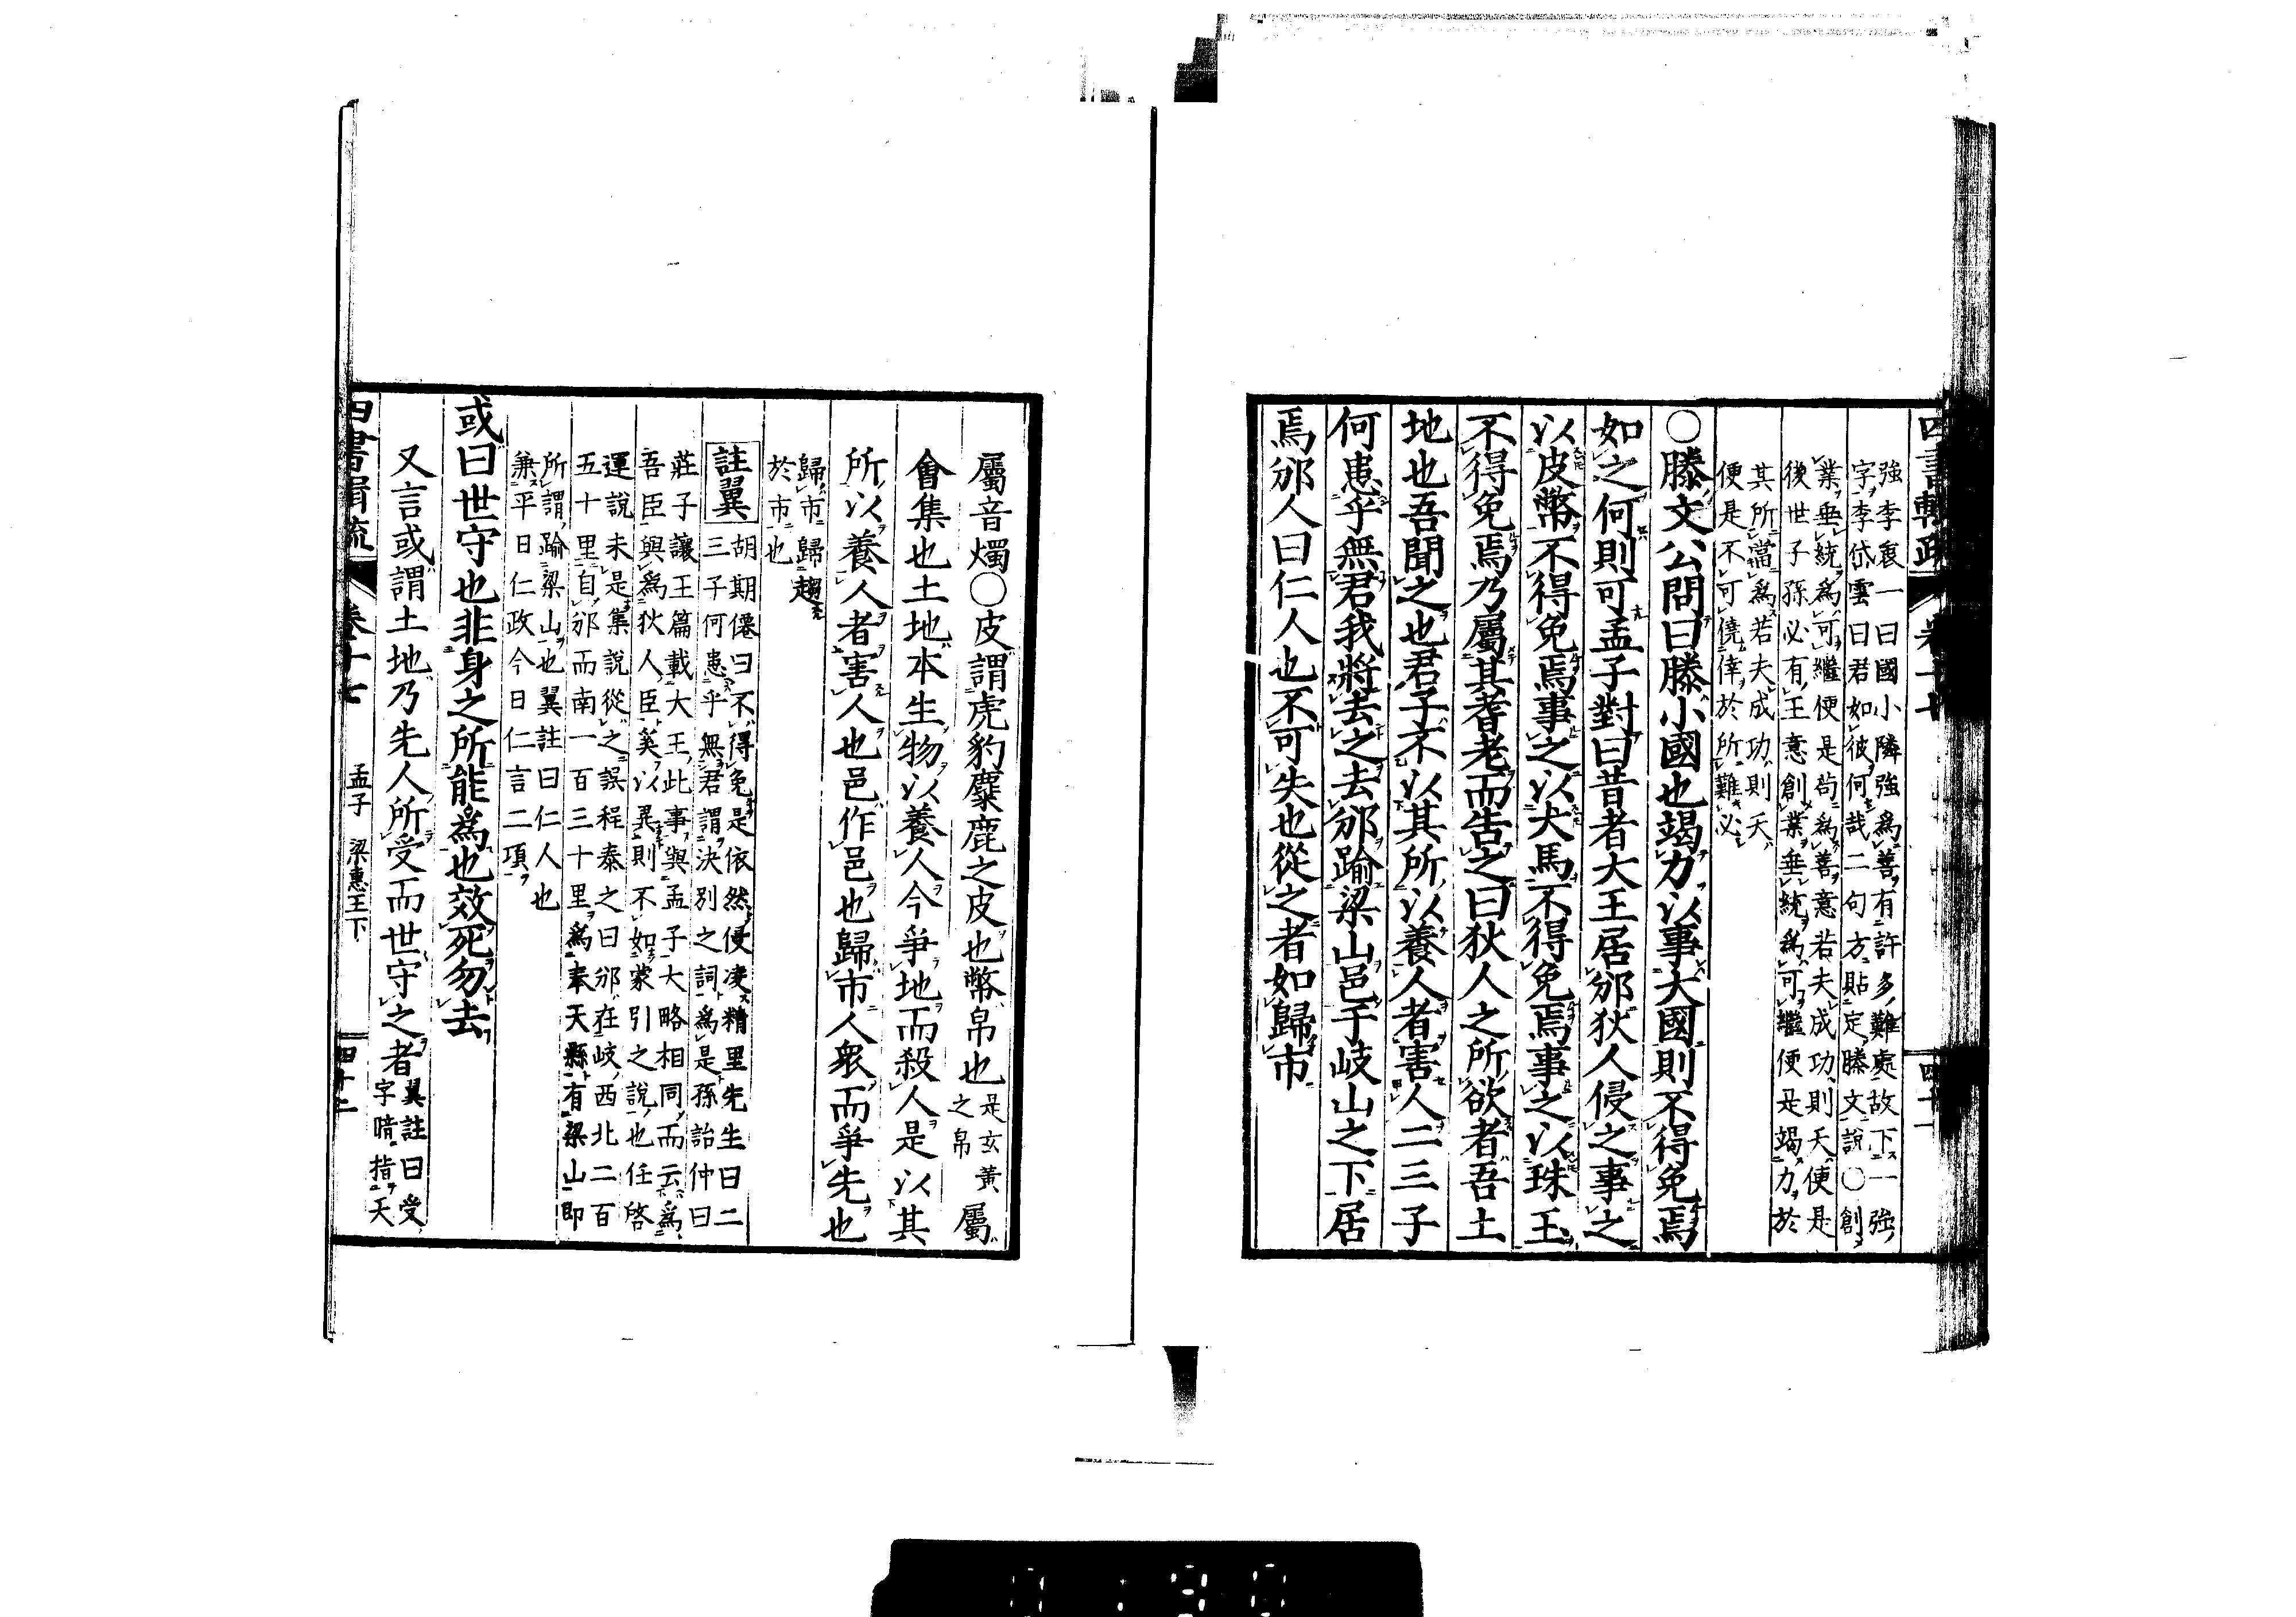 四書輯疏 卷十七 四十一
強李衷一曰國小隣強爲善有許多難處故下一強
字李岱雲曰君如彼何哉二句方貼定滕文說○創
業垂統爲可繼便是苟爲善意若夫成功則天便是
後世子孫必有王意創業垂統爲可繼便是竭力於
其所當爲若夫成功則天
便是不可僥倖於所難必
○滕文公問曰滕小國也竭力以事大國則不得免焉
如之何則可孟子對曰昔者大王居邠狄人侵之事之
以皮幣不得免焉事之以犬馬不得免焉事之以珠玉
不得免焉乃屬其耆老而告之曰狄人之所欲者吾土
地也吾聞之也君子不以其所以養人者害人二三子
何患乎無君我將去之去邠踰梁山邑于岐山之下居
焉邠人曰仁人也不可失也從之者如歸市
屬音燭○皮謂虎豹麋鹿之皮也幣帛也是玄黃之帛屬
會集也土地本生物以養人今爭地而殺人是以其
所以養人者害人也邑作邑也歸市人衆而爭先也
歸市歸趨
於市也
註翼胡期僊曰不得免是依然侵凌精里先生曰二
三子何患乎無君謂決別之詞爲是孫詒仲曰
莊子讓王篇載大王此事與孟子大略相同而云爲
吾臣與爲狄人臣奚以異則不如蒙引之說也任啓
運說未是集說從之誤程泰之曰邠在岐西北二百
五十里自邠而南一百三十里爲奉天縣有梁山即
所謂踰梁山也翼註曰仁人也
兼平日仁政今日仁言二項
或曰世守也非身之所能爲也效死勿去
又言或謂土地乃先人所受而世守之者翼註曰受字暗指天
四書輯疏 卷十七 孟子 梁惠王下 四十二